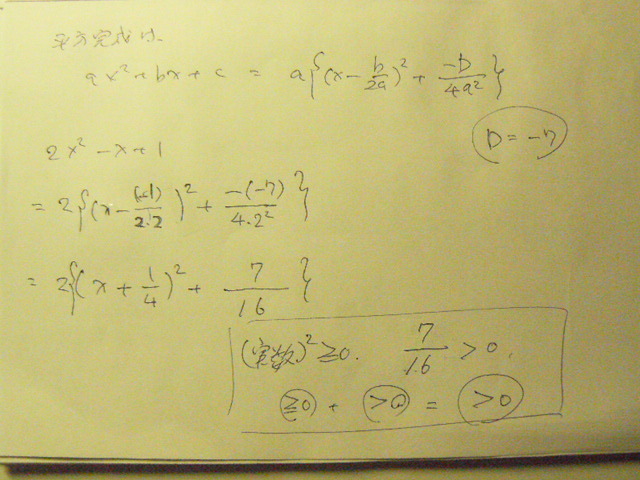 平方完成は、
ax²+bx+c = a{(x-b/2a)²+-D/4a²}
D=-7
2x²-x+1
=2{(x-(-1)/2·2)²+-(-7)/4·2²}
=2{(x+1/4)²+7/16}
(実数)²≥0. 7/16>0.
≥0 + >0 = >0